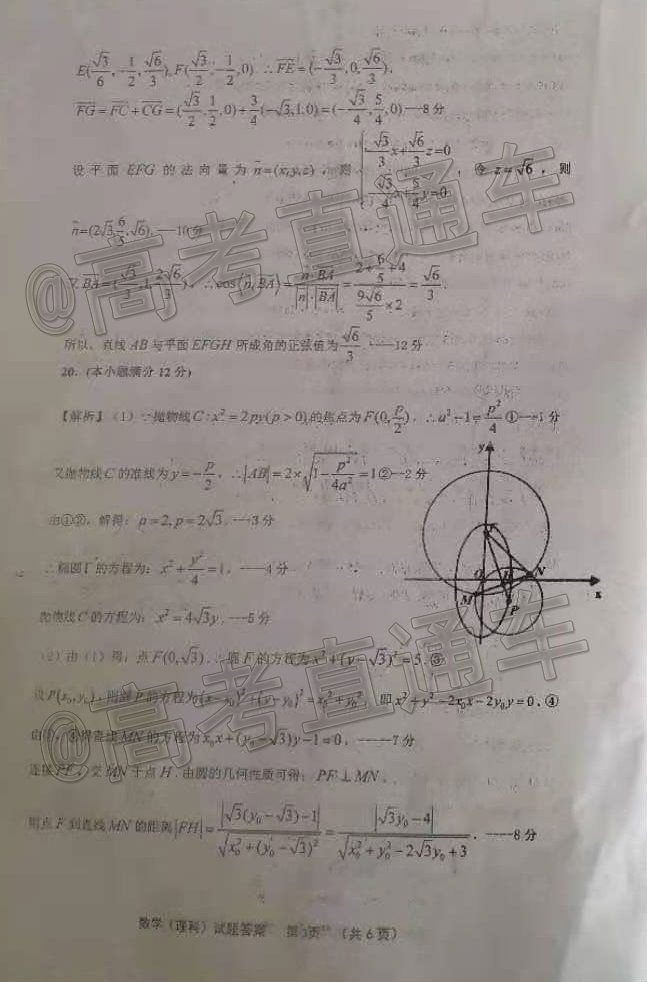 E(√3/6, -1/2, √6/3), F(√3/2, -1/2, 0) ∴FE=(-√3/3, 0, √6/3),
FG=FC+CG=(√3/2, 1/2, 0)+3/4(-√3,1,0)=(-√3/4, 5/4, 0)---8分
设平面EFG的法向量为n=(x,y,z),则 {-√3/3x+√6/3z=0 -√3/4x+5/4y=0 ,令z=√6,则
n=(2√3,6/5,√6).----10分
又BA=( √3/3,1,2√6/3), ∴cos⟨n,BA⟩=n·BA/|n|·|BA|=2+6/5+4/9√6/5×2=√6/3.
所以,直线AB与平面EFGH所成角的正弦值为√6/3.----12分
20.(本小题满分12分)
【解析】(1)∵抛物线C:x²=2py(p>0)的焦点为F(0,p/2),∴a²-1=p²/4①---1分
又抛物线C的准线为y=-p/2,∴|AB|=2×√1-p²/4a²=1②---2分
由①②,解得:a=2,p=2√3.----3分
∴椭圆Γ的方程为:x²+y²/4=1,----4分
抛物线C的方程为:x²=4√3y.---5分
y
F
O
H
N
M
P
x
(2)由(1)得:点F(0,√3).∴圆F的方程为x²+(y-√3)²=5.③
设P(x₀,y₀),则圆P的方程为(x-x₀)²+(y-y₀)²=x₀²+y₀²,即x²+y²-2x₀x-2y₀y=0.④
由③,④得直线MN的方程为x₀x+(y₀-√3)y-1=0.-----7分
连接PF,交MN于点H.由圆的几何性质可得:PF⊥MN,
则点F到直线MN的距离|FH|=|√3(y₀-√3)-1|/√x₀²+(y₀-√3)²=|√3y₀-4|/√x₀²+y₀²-2√3y₀+3.-----8分
数学(理科)试题答案 第3页 (共6页)
@高考直通车
@高考直通车